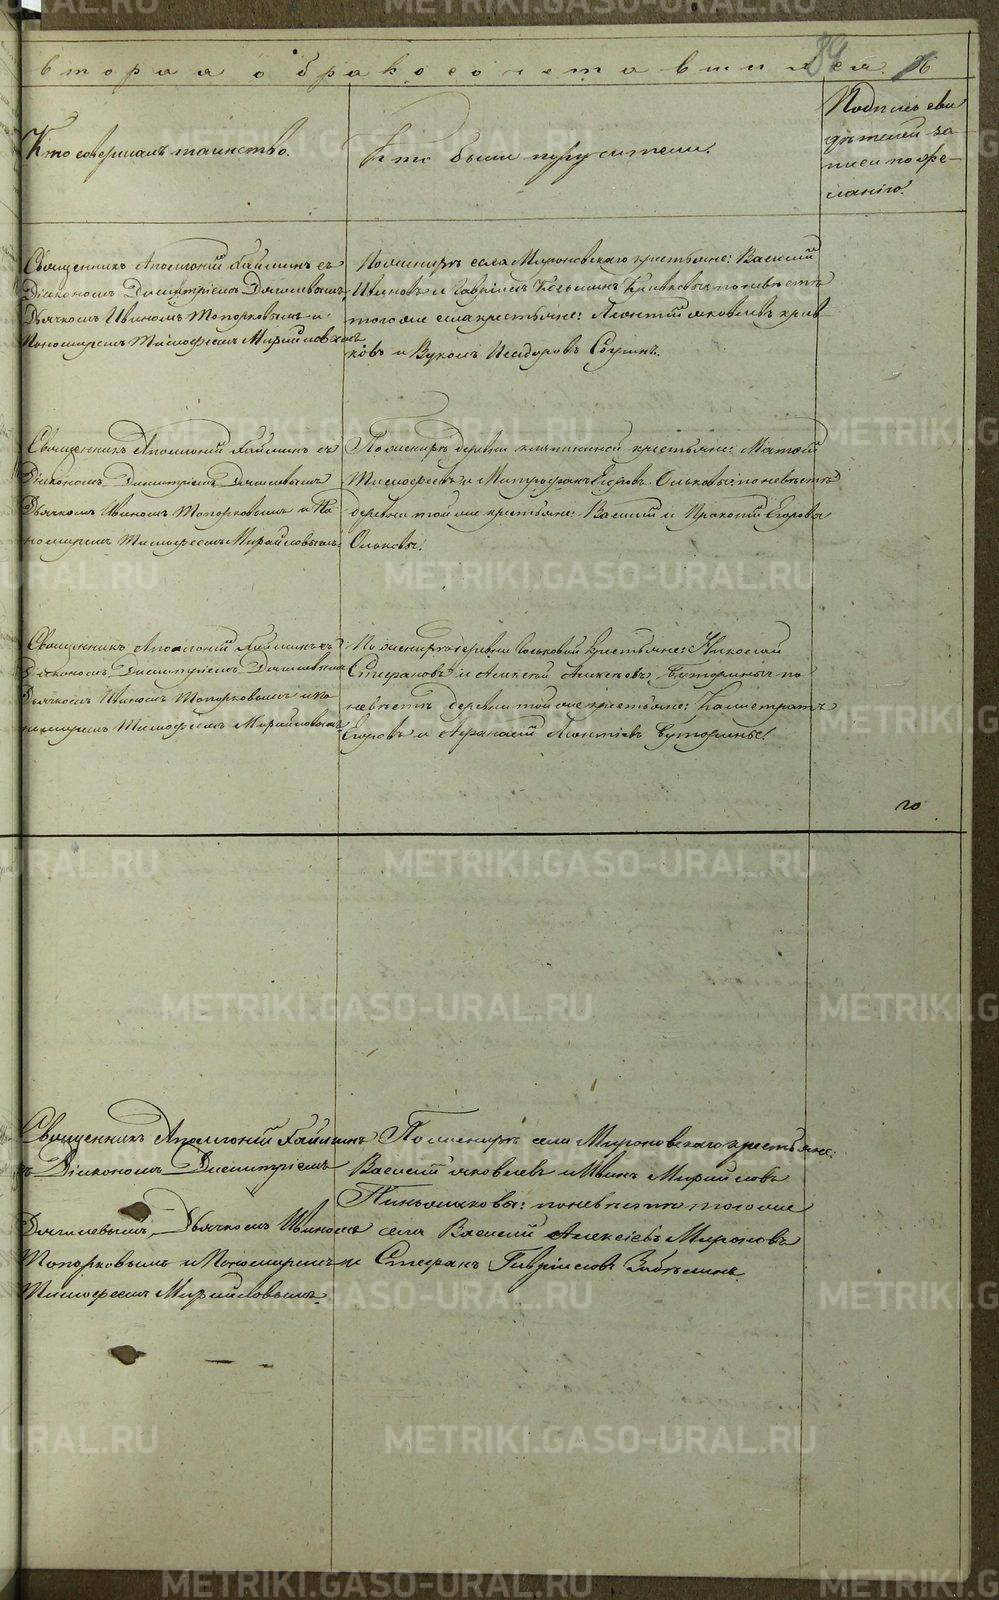 вторая о бракосочетавшихся.
89
16
Кто совершалъ таинство.
Кто были поручители.
Подпись сви
дѣтелей за
писи по же-
ланію.
Священникъ Аполлоній съ
Діакономъ Димитріемъ Дягилевымъ,
Дьячкомъ Иваномъ Топорковымъ и
Пономаремъ Тимофеемъ
По женихѣ села Мироновскаго крестьяне: Василій
Ивановъ и Гавріилъ по невѣстѣ
того же села крестьяне: Леонтій Яковлевъ крив
ковъ и Исидоровъ
Священникъ Аполлоній съ
Діакономъ Димитріемъ Дягилевымъ
Дьячкомъ Иваномъ Топорковымъ и По
номаремъ Тимофеемъ
По женихѣ деревни крестьяне: Матвѣй
Тимофеевъ и Митрофанъ Егоровъ Ольковы: по невѣстѣ
деревни той же крестьяне: Василій и Прокопій Егоровы
Ольковы.
Священникъ Аполлоній съ
Діакономъ Димитріемъ Дягилевымъ
Дьячкомъ Иваномъ Топорковымъ и По
номаремъ Тимофеемъ
По женихѣ деревни крестьяне: Николай
Стефановъ и Алексѣй Алексѣевъ Буторины: по
невѣстѣ деревни той же крестьяне: Калистратъ
Егоровъ и Афанасій Леонтіевъ Буторины.
Священникъ Аполлоній
съ Діакономъ Димитріемъ
Дягилевымъ, Дьячкомъ Иваномъ
Топорковымъ и Пономаремъ
Тимофеемъ
По женихѣ села Мироновскаго крестьяне:
Василій Яковлевъ и Иванъ
по невѣстѣ того же
села Василій Алексіевъ Мироновъ
и Стефанъ Гавріиловъ
METRIKI.GASO-URAL.RU